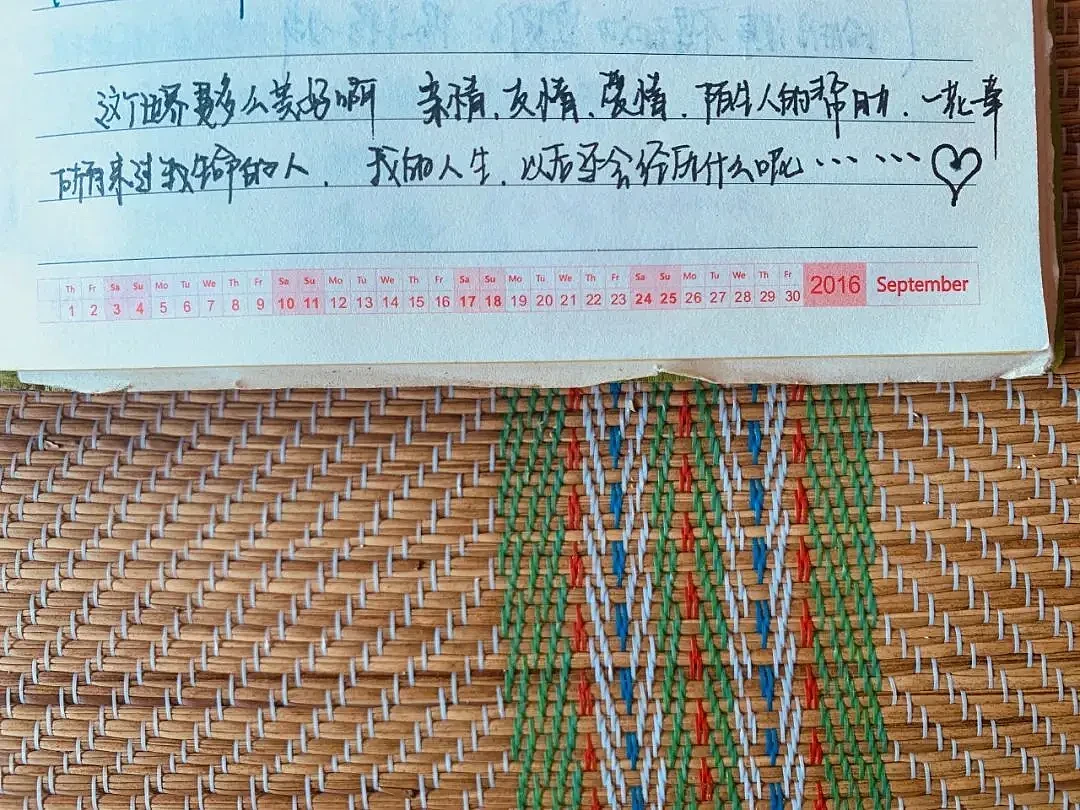 这个世界是多么美好啊 亲情、友情、爱情、陌生人的帮助、一花一草
所有来过我生命的人、 我的人生、以后还会经历什么呢……
Th Fr Sa Su Mo Tu We Th Fr Sa Su Mo Tu We Th Fr Sa Su Mo Tu We Th Fr Sa Su Mo Tu We Th Fr
1 2 3 4 5 6 7 8 9 10 11 12 13 14 15 16 17 18 19 20 21 22 23 24 25 26 27 28 29 30 2016 September